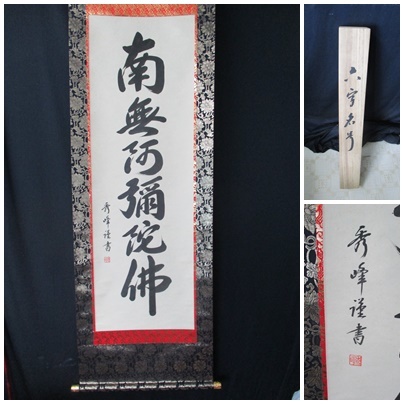 南無阿彌陀佛
秀峰謹書
六字名号
秀峰謹書